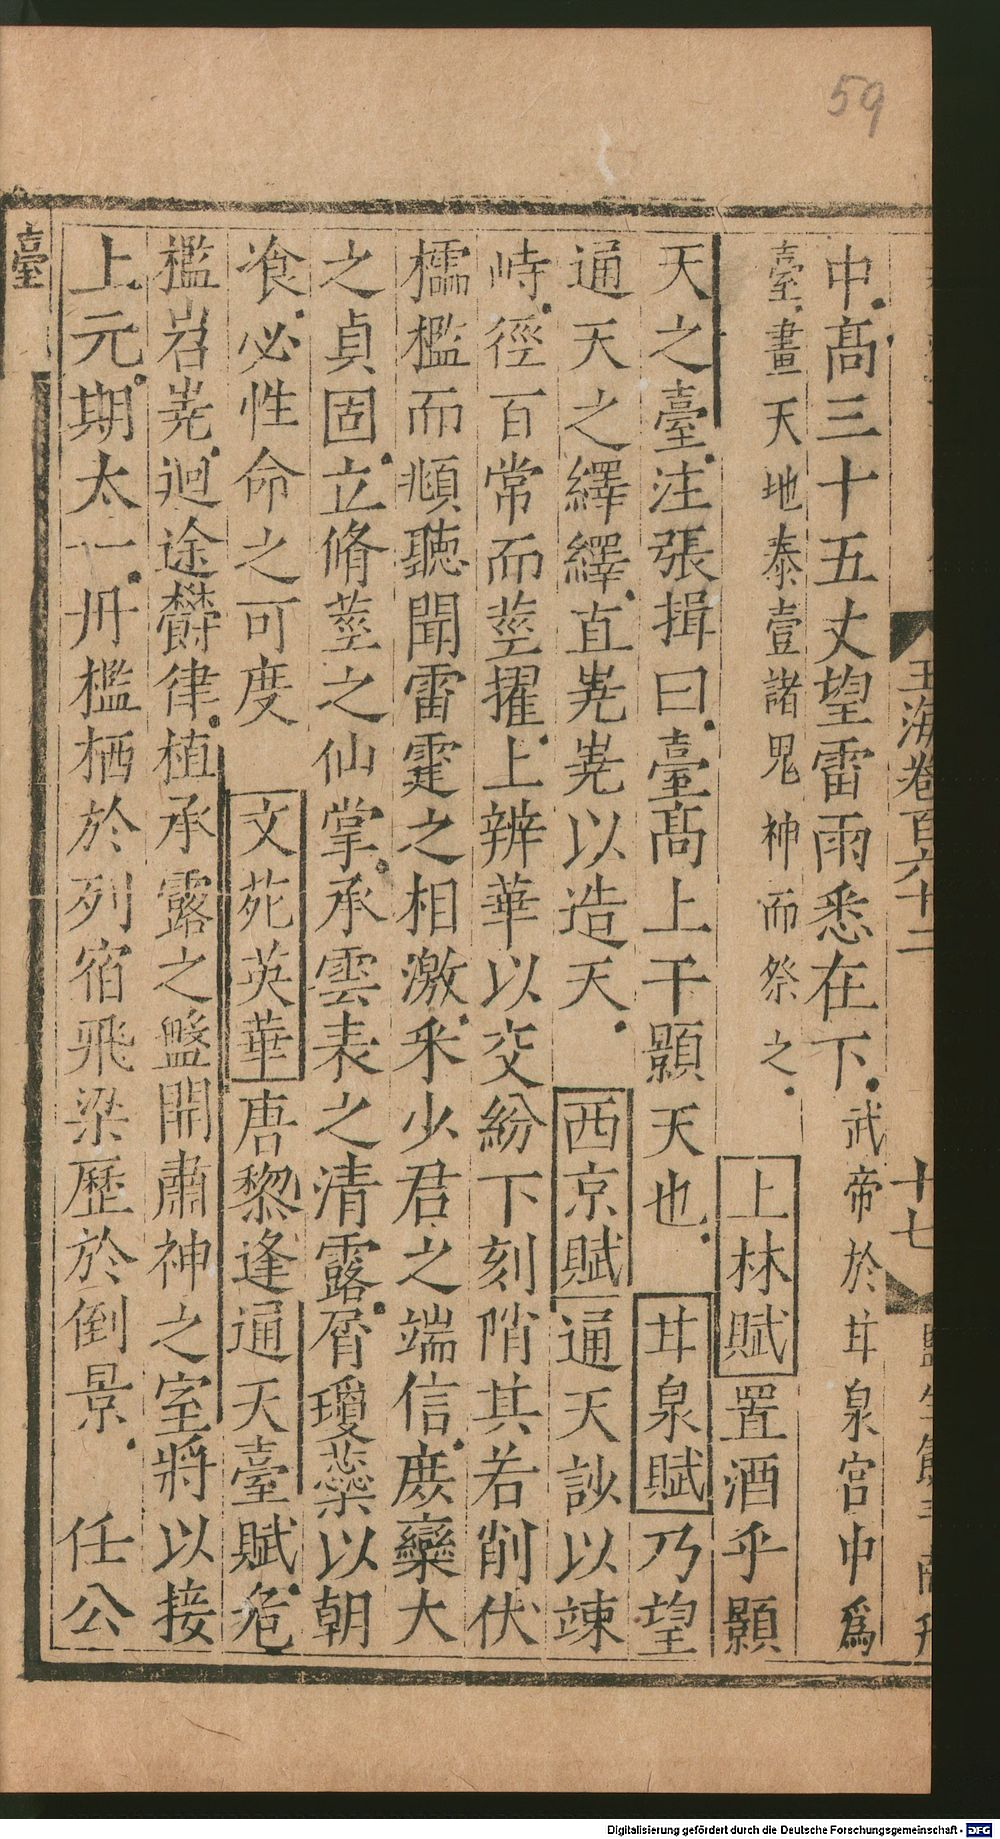 59
玉海卷百六十二
十七
中高三十五丈望雷雨悉在下武帝於甘泉宮中爲
臺畫天地泰壹諸鬼神而祭之
上林賦置酒乎顥
天之臺注張揖曰臺高上干顥天也
甘泉賦乃望
通天之繹繹直嶤嶤以造天
西京賦通天訬以竦
峙徑百常而莖擢上辨華以交紛下刻陗其若削伏
櫺檻而頫聽聞雷霆之相激釆少君之端信庻欒大
之貞固立脩莖之仙掌承雲表之清露屑瓊蘂以朝
飡必性命之可度
文苑英華唐黎逢通天臺賦危
檻岧嶤迴途欝律植承露之盤開肅神之室將以接
上元期太一丹檻栖於列宿飛梁歷於倒景
任公
臺
Digitalisierung gefördert durch die Deutsche Forschungsgemeinschaft - DFG